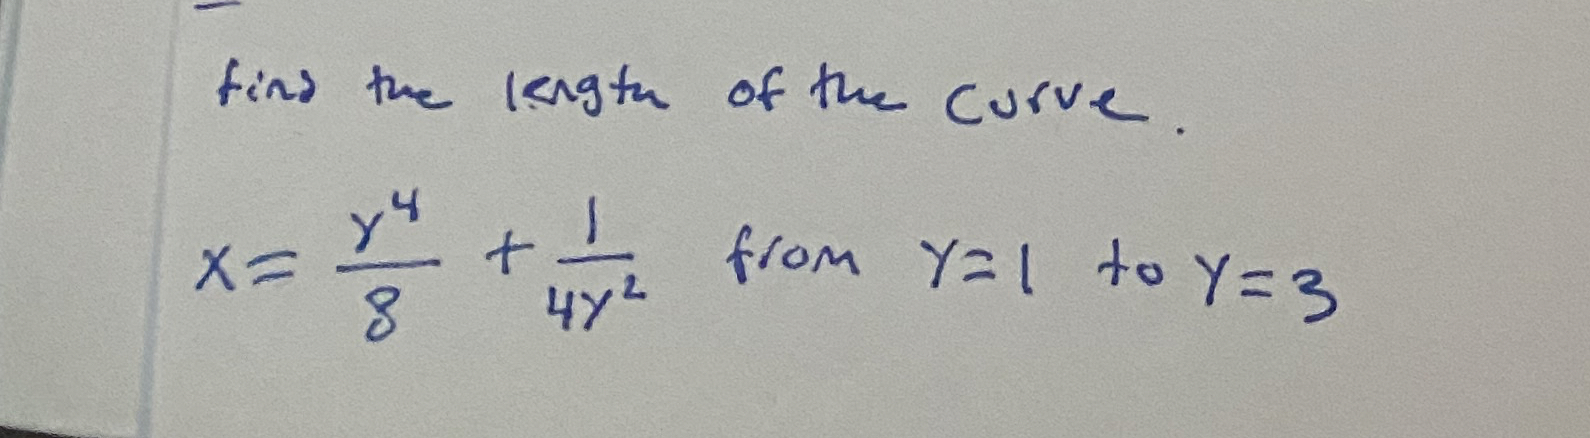 find the length of the curve.
x = y^4/8 + 1/4y^2 from y=1 to y=3